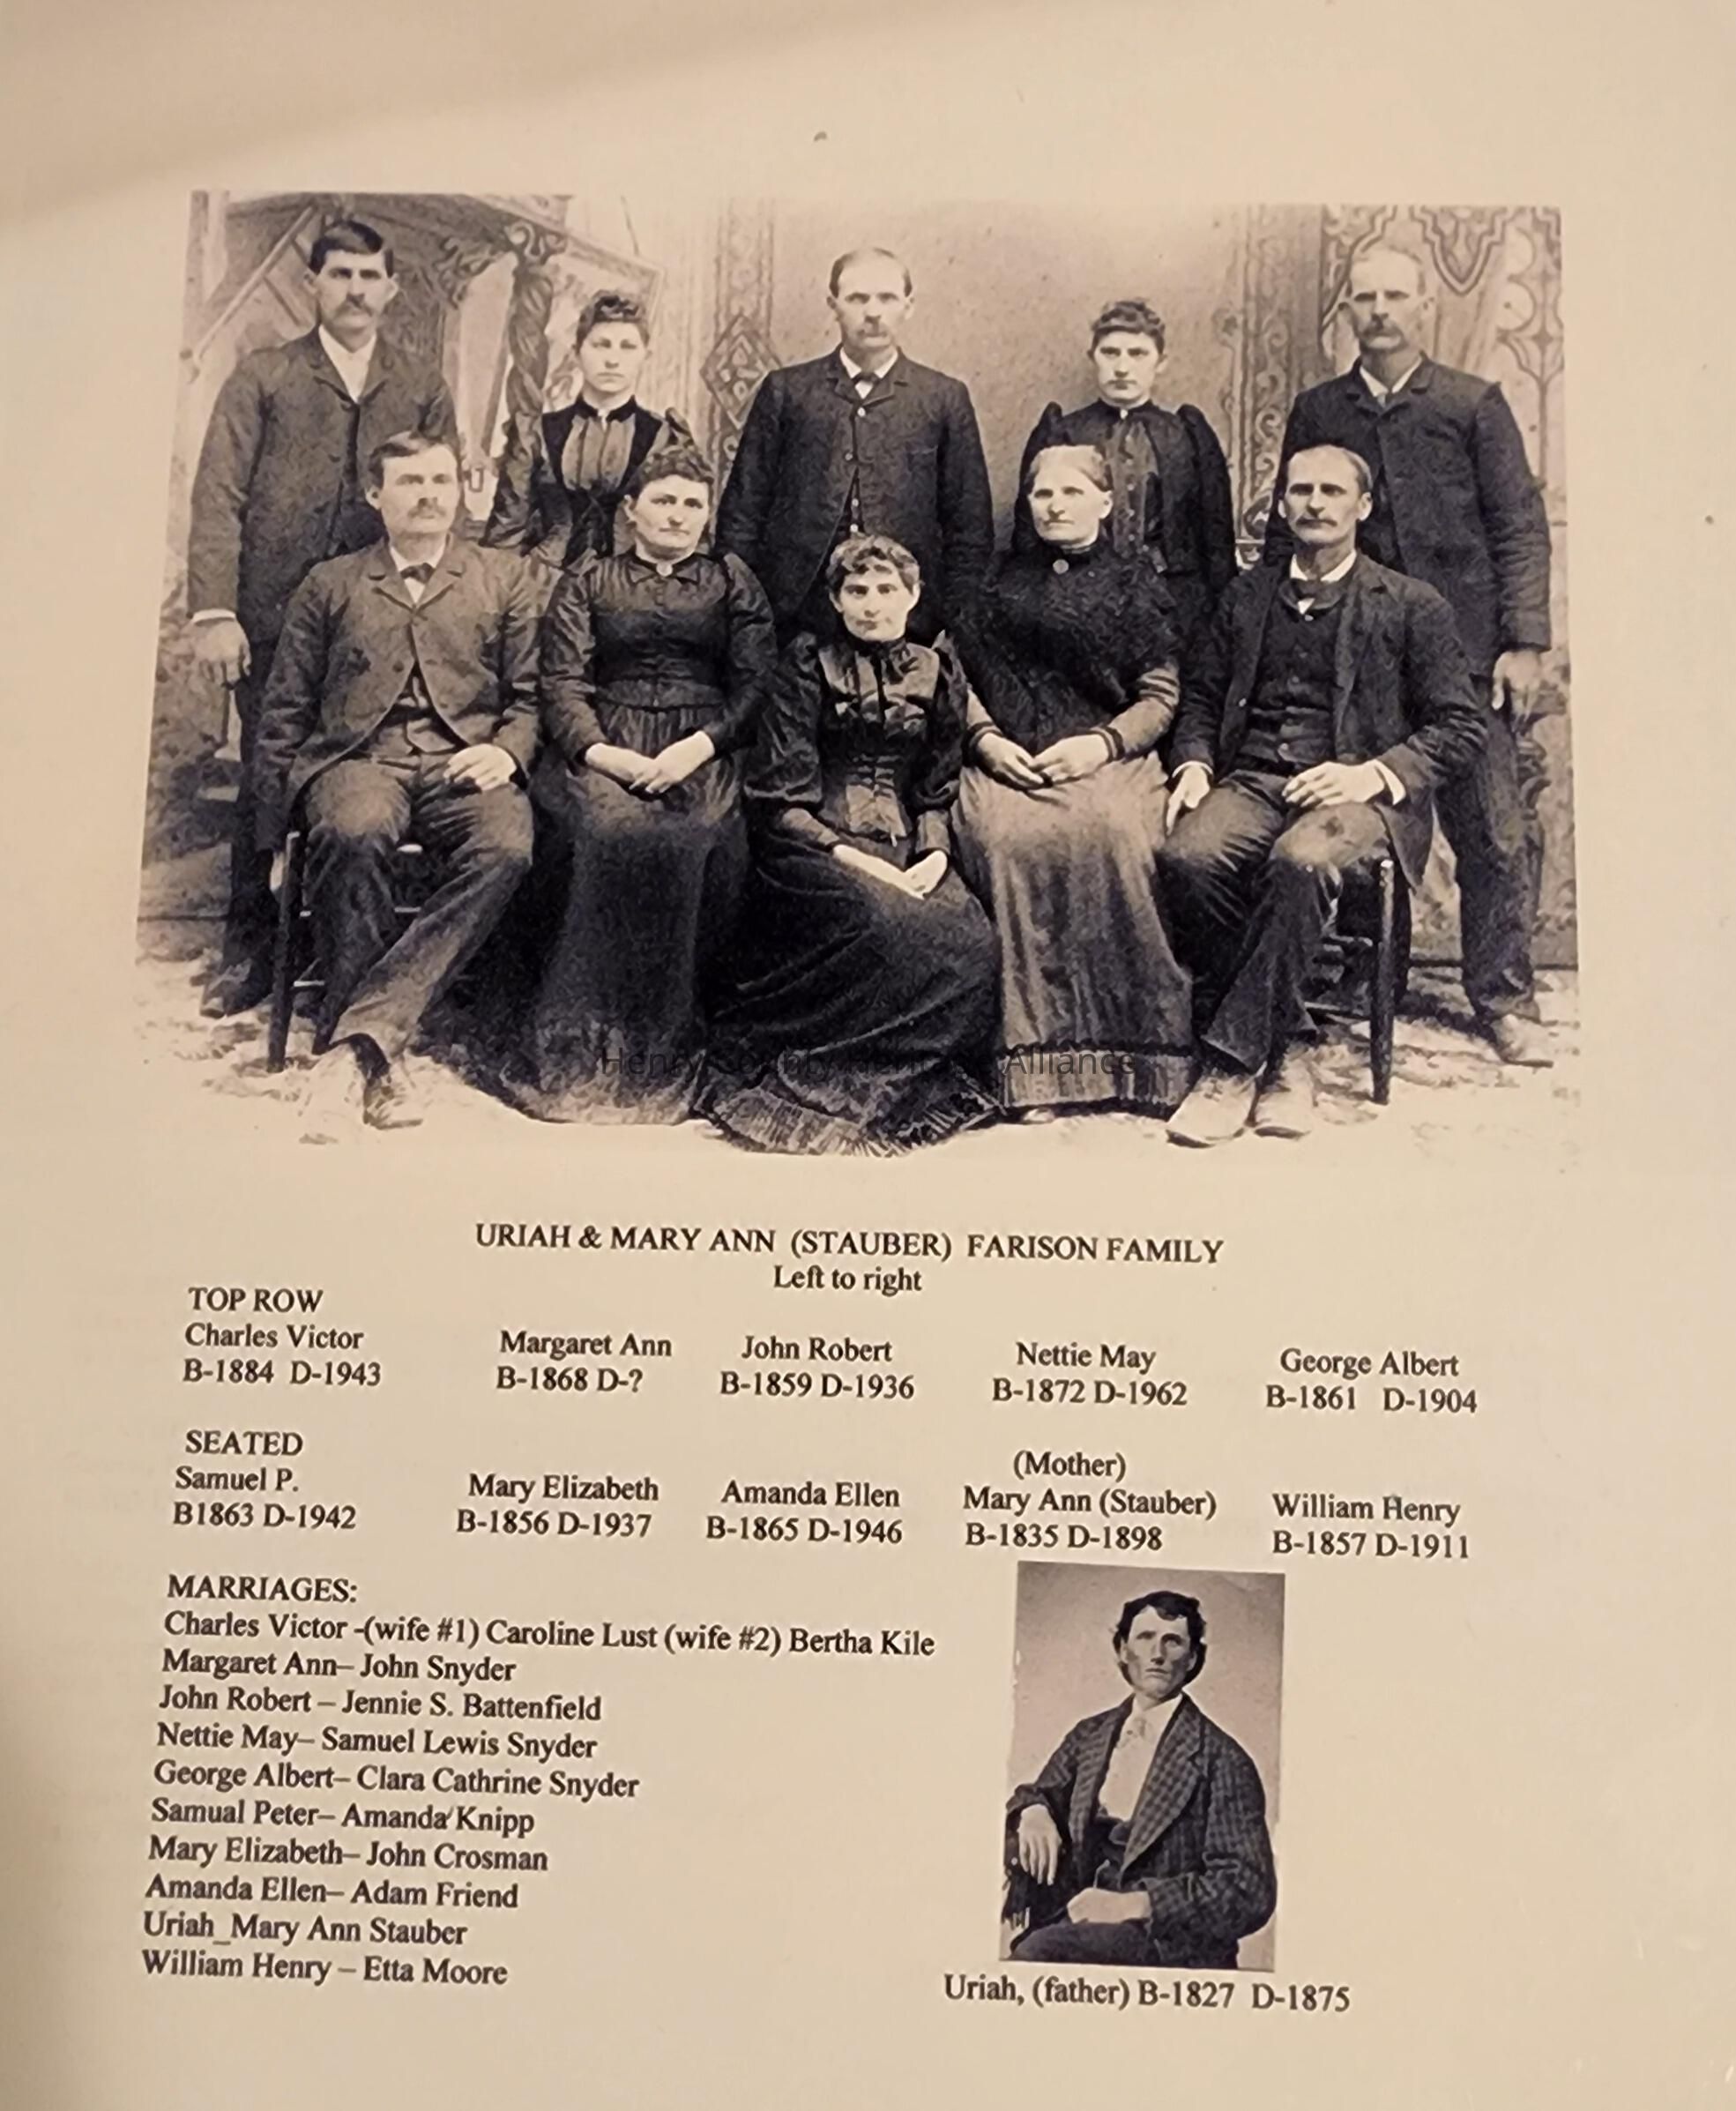 Henry County Heritage Alliance
URIAH & MARY ANN (STAUBER) FARISON FAMILY
Left to right
TOP ROW
Charles Victor Margaret Ann John Robert Nettie May George Albert
B-1884 D-1943 B-1868 D-? B-1859 D-1936 B-1872 D-1962 B-1861 D-1904
SEATED (Mother)
Samuel P. Mary Elizabeth Amanda Ellen Mary Ann (Stauber) William Henry
B1863 D-1942 B-1856 D-1937 B-1865 D-1946 B-1835 D-1898 B-1857 D-1911
MARRIAGES:
Charles Victor -(wife #1) Caroline Lust (wife #2) Bertha Kile
Margaret Ann– John Snyder
John Robert – Jennie S. Battenfield
Nettie May– Samuel Lewis Snyder
George Albert– Clara Cathrine Snyder
Samual Peter– Amanda Knipp
Mary Elizabeth– John Crosman
Amanda Ellen– Adam Friend
Uriah_Mary Ann Stauber
William Henry – Etta Moore
Uriah, (father) B-1827 D-1875